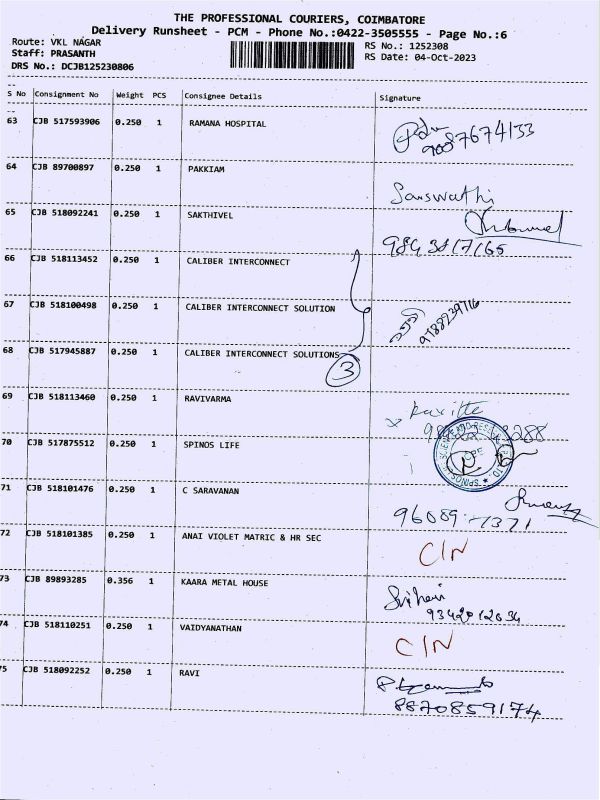 THE PROFESSIONAL COURIERS, COIMBATORE
Delivery Runsheet - PCM - Phone No.:0422-3505555 - Page No.:6
Route: VKL NAGAR
RS No.: 1252308
Staff: PRASANTH
RS Date: 04-Oct-2023
DRS No.: DCJB125230806
S No Consignment No Weight PCS Consignee Details Signature
63 CJB 517593906 0.250 1 RAMANA HOSPITAL
64 CJB 89700897 0.250 1 PAKKIAM
Sarswathi
65 CJB 518092241 0.250 1 SAKTHIVEL
9843817165
66 CJB 518113452 0.250 1 CALIBER INTERCONNECT
67 CJB 518100498 0.250 1 CALIBER INTERCONNECT SOLUTION
9788939716
68 CJB 517945887 0.250 1 CALIBER INTERCONNECT SOLUTIONS
3
69 CJB 518113460 0.250 1 RAVIVARMA
70 CJB 517875512 0.250 1 SPINOS LIFE
71 CJB 518101476 0.250 1 C SARAVANAN
72 CJB 518101385 0.250 1 ANAI VIOLET MATRIC & HR SEC
C/N
73 CJB 89893285 0.356 1 KAARA METAL HOUSE
9342012034
74 CJB 518110251 0.250 1 VAIDYANATHAN
C/N
75 CJB 518092252 0.250 1 RAVI
8870859174